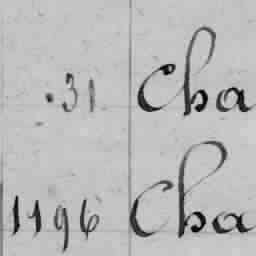 .31 Cha
1196 Cha